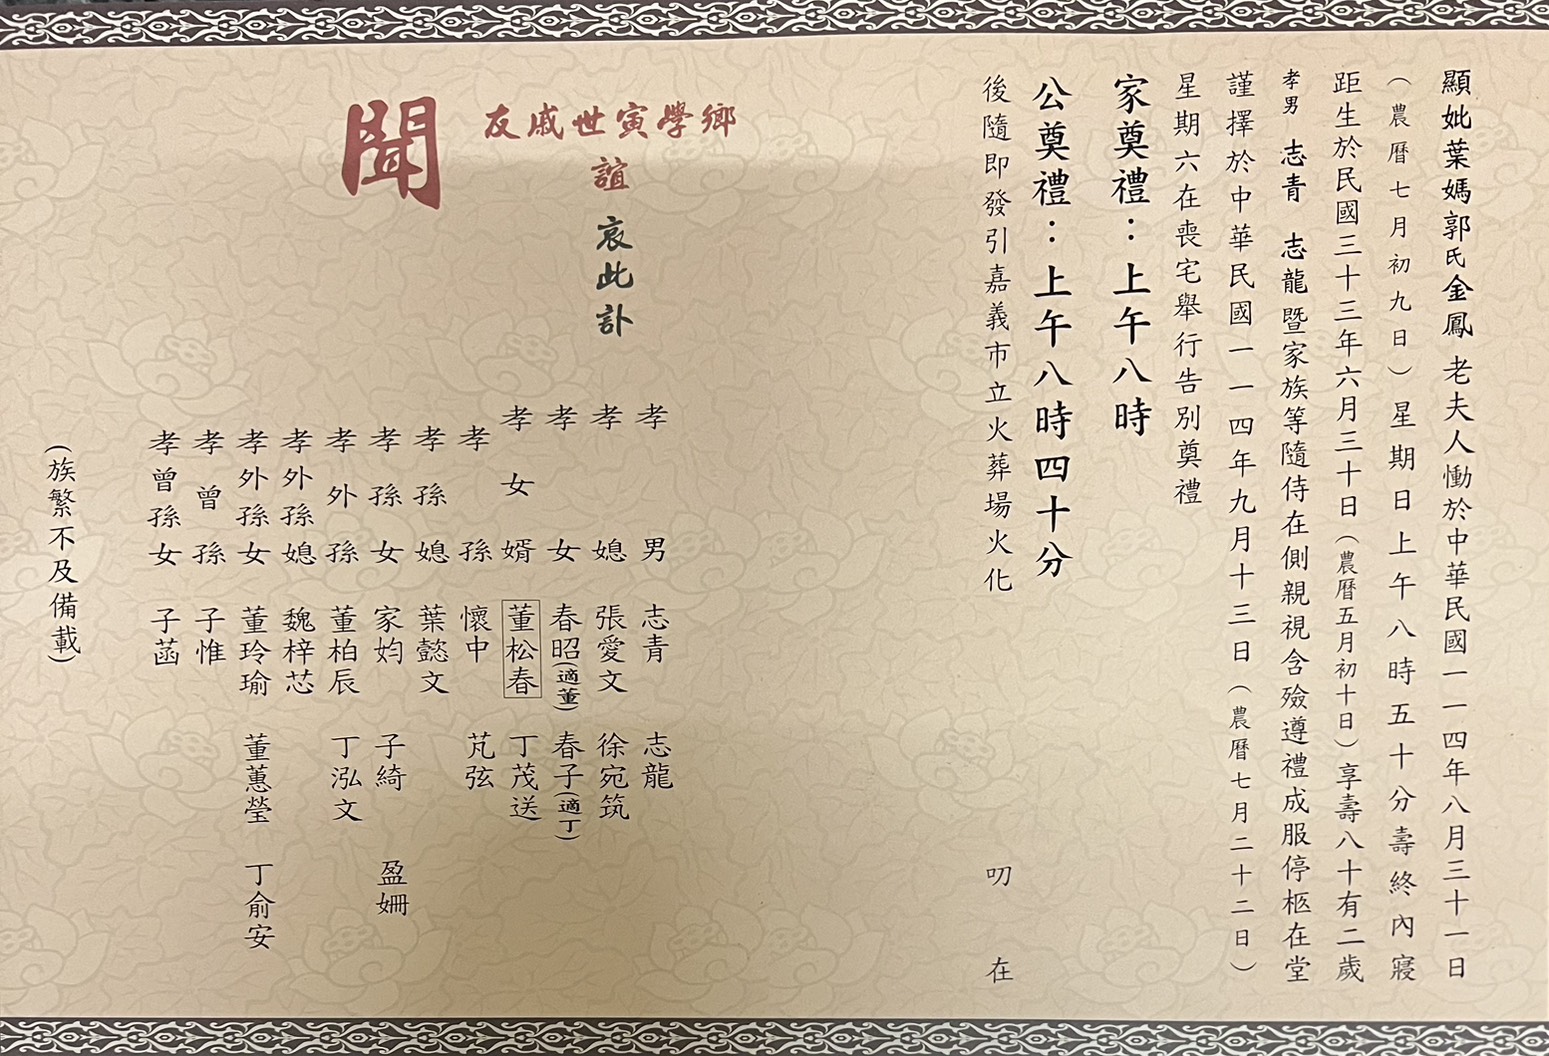 顯妣葉媽郭氏金鳳老夫人慟於中華民國一一四年八月三十一日
（農曆七月初九日）星期日上午八時五十分壽終內寢
距生於民國三十三年六月三十日（農曆五月初十日）享壽八十有二歲
孝男 志青 志龍暨家族等隨侍在側親視含殮遵禮成服停柩在堂
謹擇於中華民國一一四年九月十三日（農曆七月二十二日）
星期六在喪宅舉行告別奠禮
家奠禮：上午八時
公奠禮：上午八時四十分
後隨即發引嘉義市立火葬場火化 叨在
鄉學寅世戚友
誼
哀此訃
聞
孝男 志青 志龍
孝媳 張愛文 徐宛筑
孝女 春昭(適董) 春子(適丁)
孝女婿 董松春 丁茂送
孝孫 懷中 芃弦
孝孫媳 葉懿文
孝孫女 家妁 子綺 盈姍
孝外孫 董柏辰 丁泓文
孝外孫媳 魏梓芯
孝外孫女 董玲瑜 董蕙瑩 丁俞安
孝曾孫 子惟
孝曾孫女 子菡
(族繁不及備載)